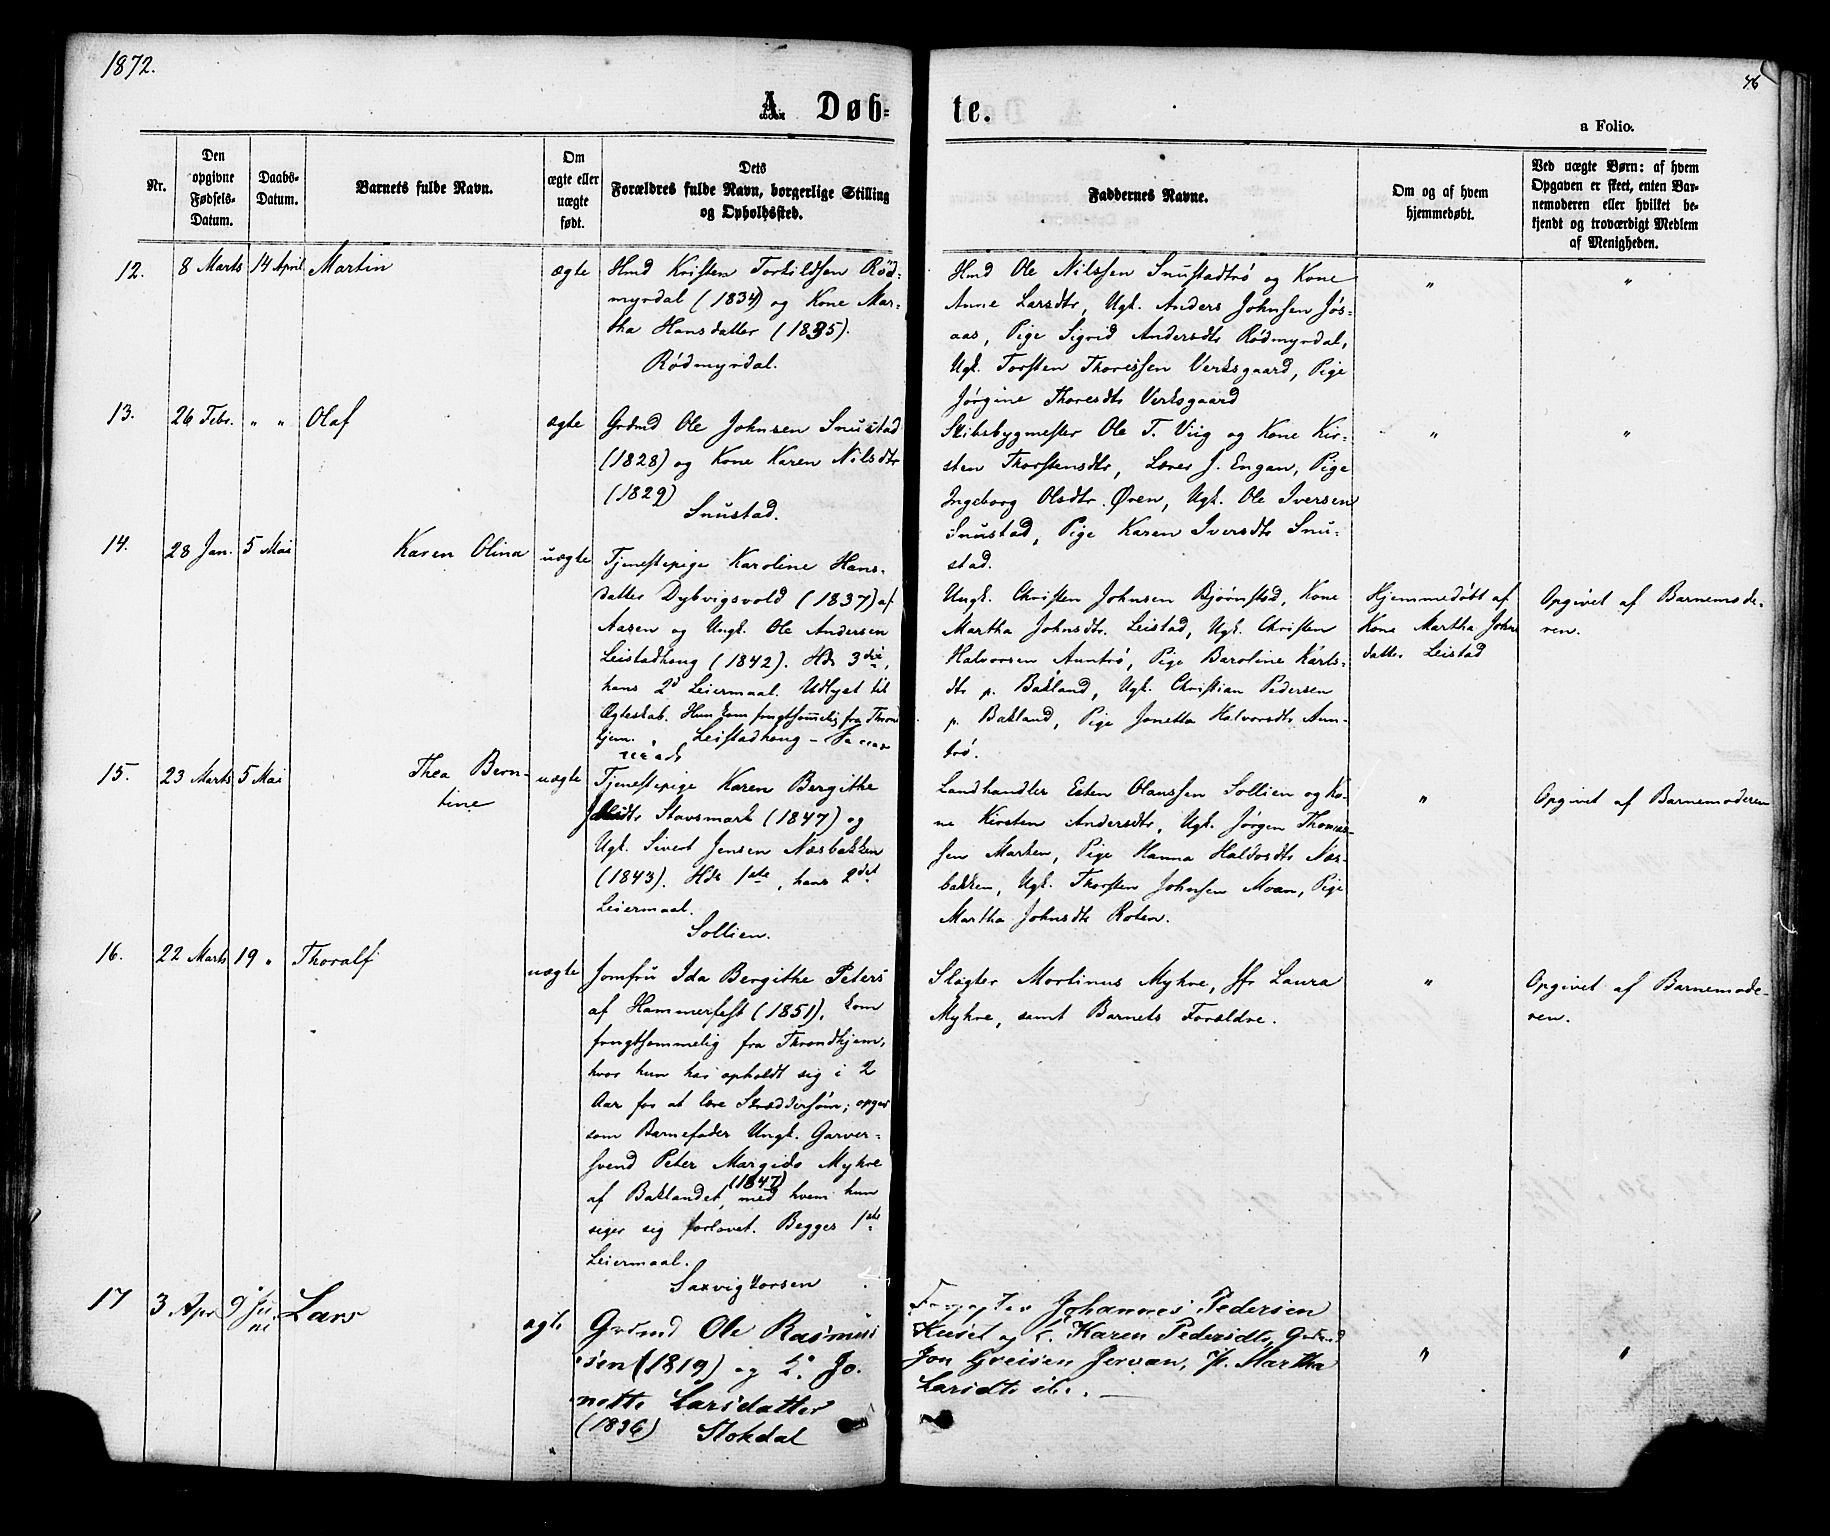 1872.
46
A. Døb-
te.
a Folio.
Nr.
Den
opgivne
Fødsels-
Datum.
Daabs-
Datum.
Barnets fulde Navn.
Om
ægte eller
uægte
født.
Dets
Forældres fulde Navn, borgerlige Stilling
og Opholdssted.
Faddernes Navne.
Om og af hvem
hjemmedøbt.
Ved uægte Børn: af hvem
Opgaven er skeet, enten Bar-
nemoderen eller hvilket be-
kjendt og troværdigt Medlem
af Menigheden.
12.
8 Marts
14 April
Martin
ægte
Hmd Kristen Torkildsen Rød-
myrdal (1834) og Kone Mar-
tha Hansdatter (1835).
Rødmyrdal.
Hmd Ole Nilssen Snustadtrø og Kone
Anne Larsdtr, Ugk. Anders Johnsen Jøs-
aas, Pige Sigrid Andersdtr Rødmyrdal,
Ugk. Torsten Thoressen Verksgaard, Pige
Jørgine Thoresdtr Verksgaard
"
"
13.
26 Febr.
" "
Olaf
ægte
Grdmd Ole Johnsen Snustad
(1828) og Kone Karen Nilsdtr
(1829)
Snustad.
Skibsbygmester Ole T. Viig og Kone Kir-
sten Thorstensdtr, Lærer J. Engan, Pige
Ingeborg Olsdtr Øren, Ugk. Ole Iversen
Snustad, Pige Karen Iversdtr Snu-
stad.
"
"
14.
28 Jan.
5 Mai
Karen Olina
uægte
Tjenestepige Karoline Hans-
datter Dybvigsvold (1837) af
Aasen og Ungk. Ole Andersen
Leistadhaug (1842). Hds 3die,
hans 2d Leiermaal. Udlyst til
Ægteskab. Hun kom frugtsommelig fra Thrond
hjem. Leistadhaug
Ungk. Christen Johnsen Bjørnstad, Kone
Martha Johnsdtr. Leistad, Ugk. Christen
Halvorsen Auntrø, Pige Baroline Karls-
dtr p. Bakland, Ugk. Christian Pedersen
p. Bakland, Pige Jonetta Halvorsdtr Aun-
trø.
Hjemmedøbt af
Kone Martha Johns
datter Leistad
Opgivet af Barnemode-
ren.
15.
23 Marts
5 Mai
Thea Bern-
tine
uægte
Tjenestepige Karen Bergithe
Stavsmark (1847) og
Ugk. Sivert Jensen Næsbakken
(1843). Hds 1ste, hans 2det
Leiermaal.
Sollien.
Landhandler Esten Olaussen Sollien og Ko-
ne Kirsten Andersdtr, Ugk. Jørgen Thomas-
sen Marken, Pige Hanna Haldosdtr Næs-
bakken, Ugk. Thorsten Johnsen Moan, Pige
Martha Johnsdtr Roten.
"
Opgivet af Barnemoderen
16.
22 Marts
19 "
Thoralf
uægte
Jomfru Ida Bergithe Peters
af Hammerfest (1851), kom
frugtsommelig fra Throndhjem,
hvor hun har opholdt sig i 2
Aar for at lære Skræddersøm; opges
som Barnefader Ungk. Garver-
svend Peter Margido Myhre
(1847)
af Baklandet, med hvem hun
siger sig forlovet. Begges 1ste
Leiermaal.
Saxvigkorsen
Slagter Mortinus Myhre, Jfr Laura
Myhre, samt Barnets Forældre.
"
Opgivet af Barnemode-
ren.
17
3 Apr
9 Ju
ni
Lars
ægte
Grdmd Ole Rasmus
sen (1819) og K. Jo-
nette Larsdatter
(1836) Stokdal
Forpagter Johannes Pedersen
Huset og K. Karen Pedersdtr, Grdmd
Jon Greisen Jervan, P. Martha
Larsdtr ib.
"
"